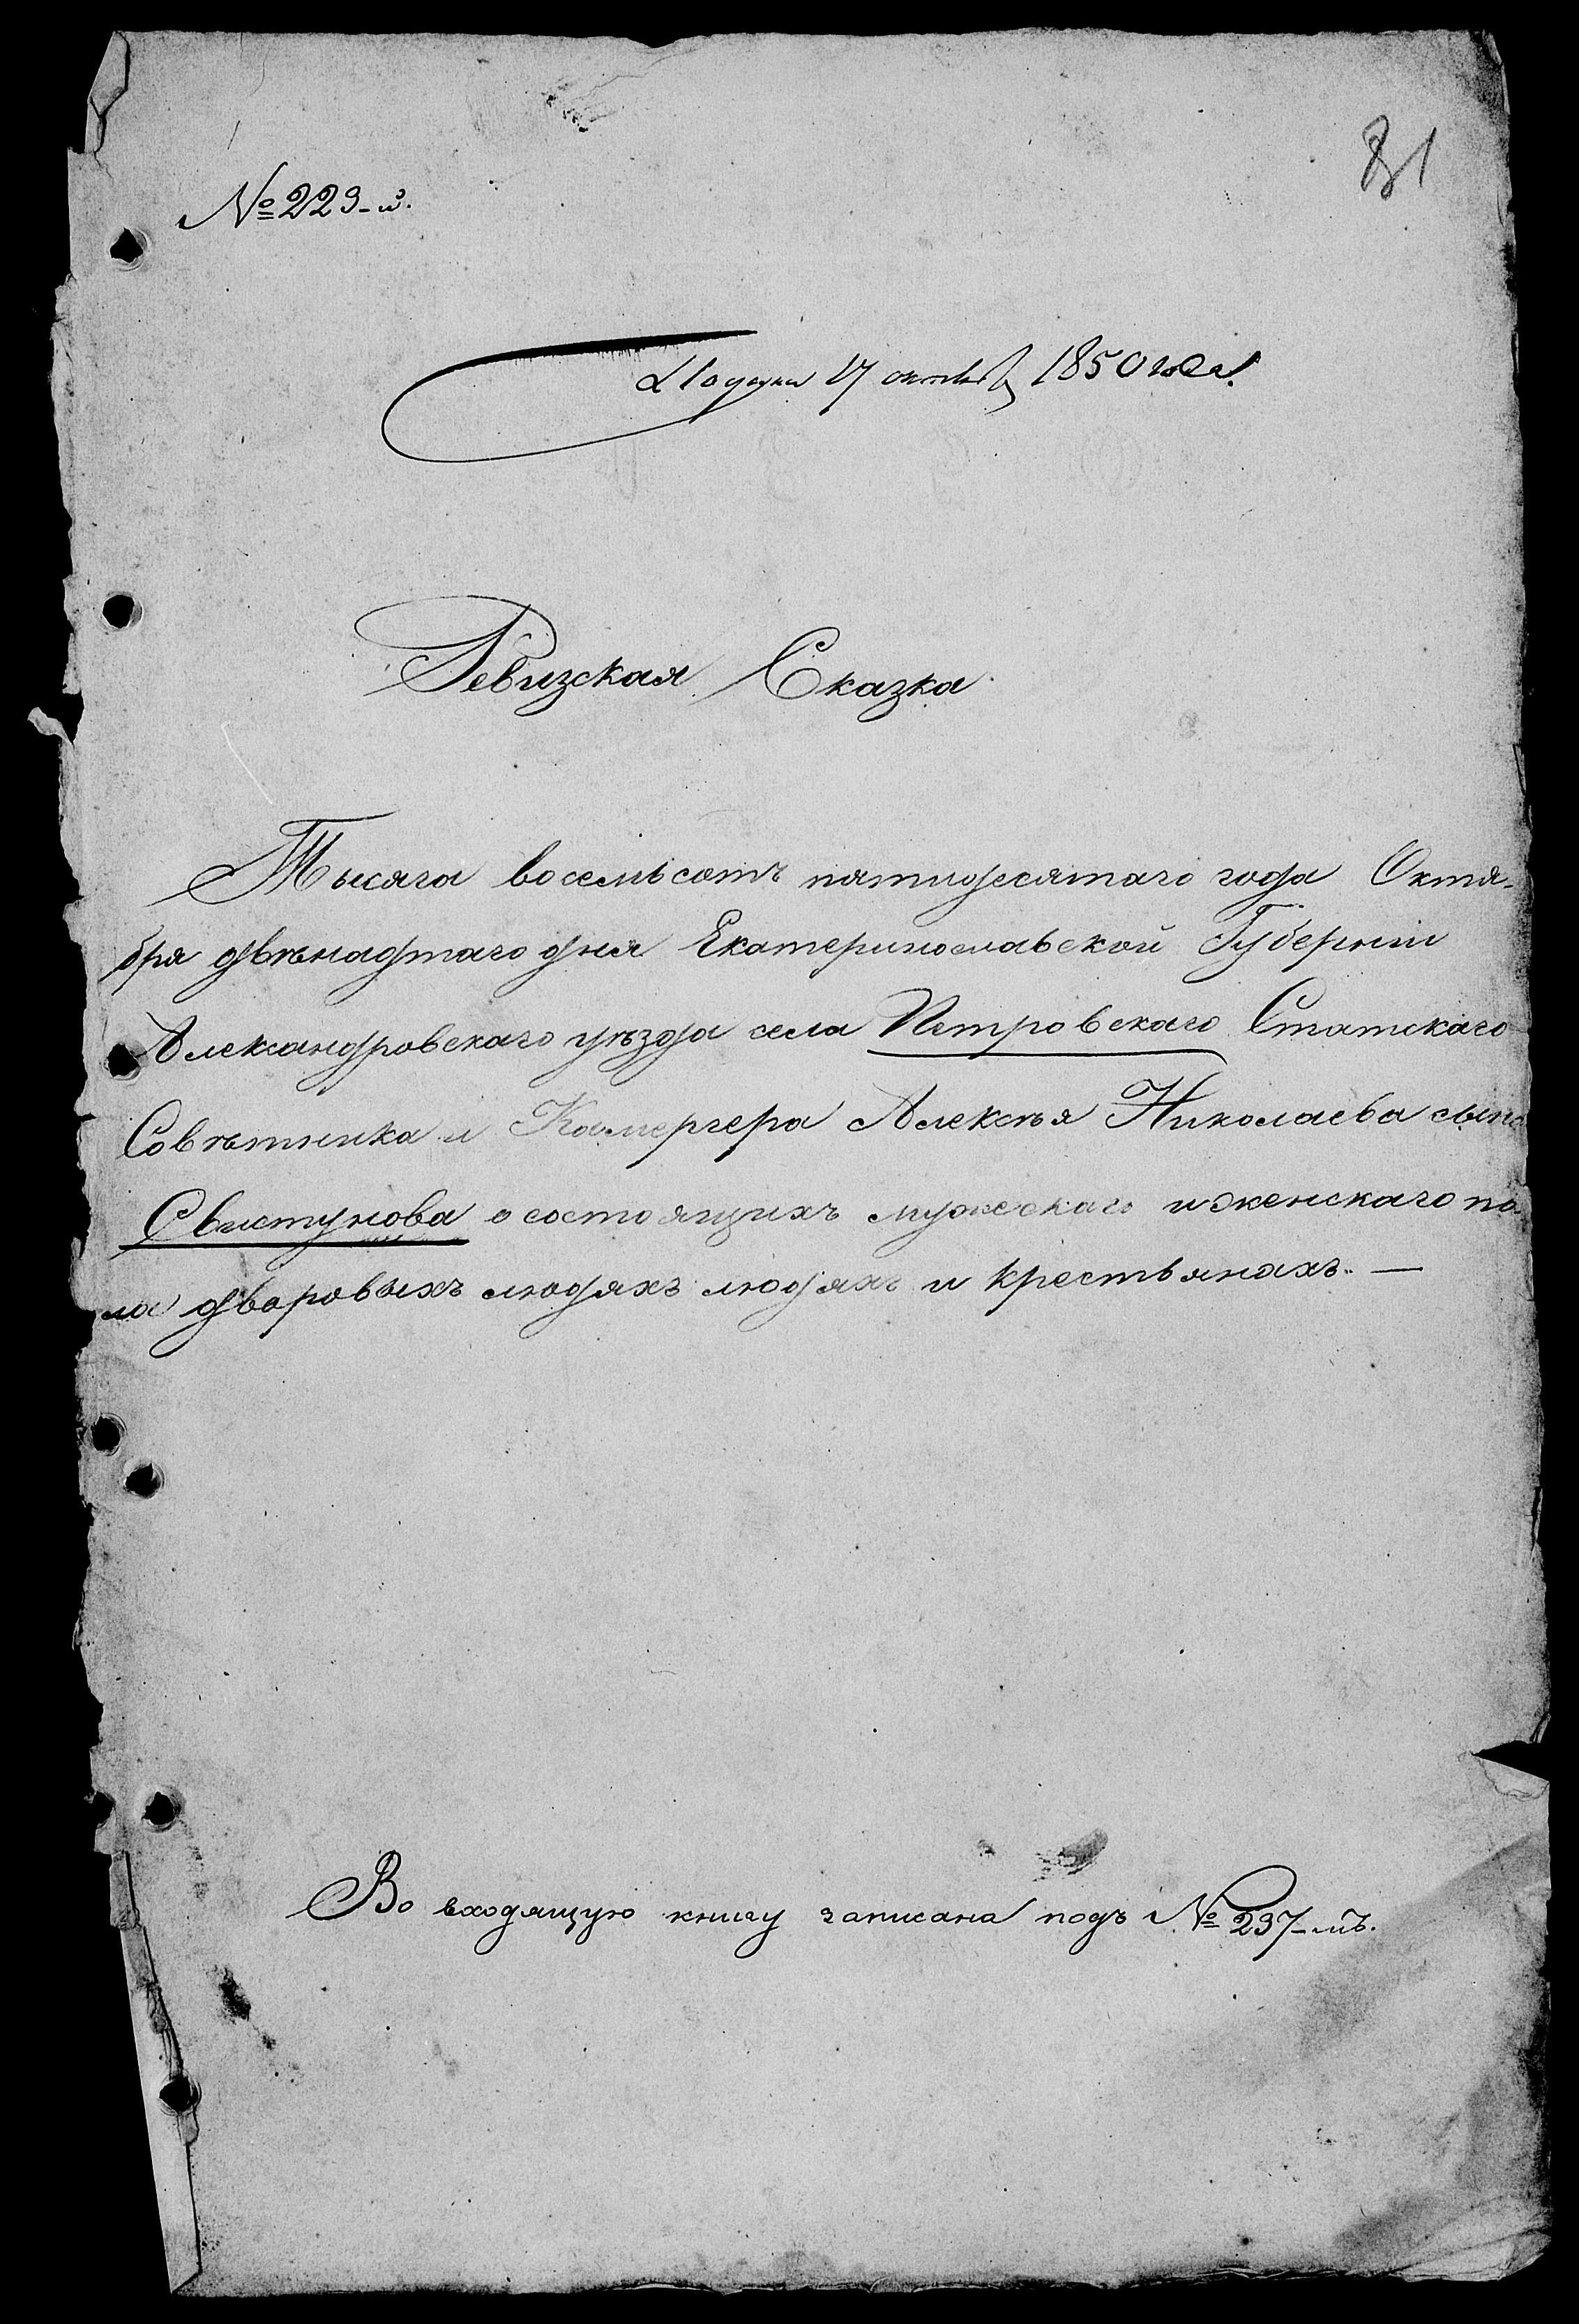 81
№ 223-й.
Подана 17 октября 1850 года.
Ревизская Сказка
Тысяча восемьсотъ пятидесятаго года Октя-
бря двѣнадцтаго дня Екатеринославской Губерніи
Александровскаго уѣзда села Петровскаго Статскаго
Совѣтника и Камергера Алексѣя Николаева сына
Свистунова о состоящихъ мужескаго и женскаго по
ла дворовыхъ людяхъ людяхъ и крестьянахъ. —
Во входящую книгу записана подъ № 237-мъ.